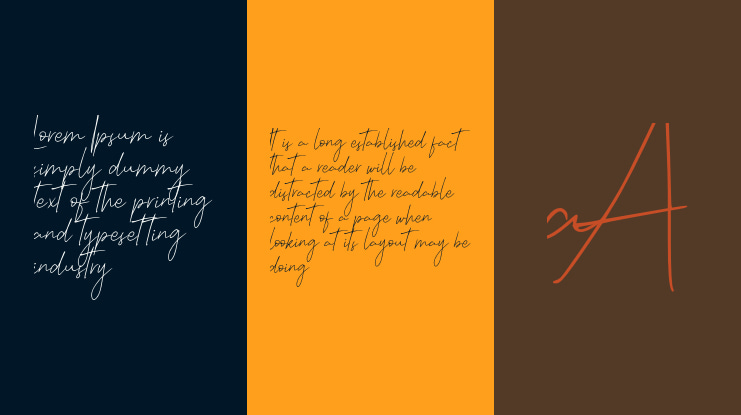 Lorem Ipsum is
simply dummy
text of the printing
and typesetting
industry
It is a long established fact
that a reader will be
distracted by the readable
content of a page when
looking at its layout may be
doing
A